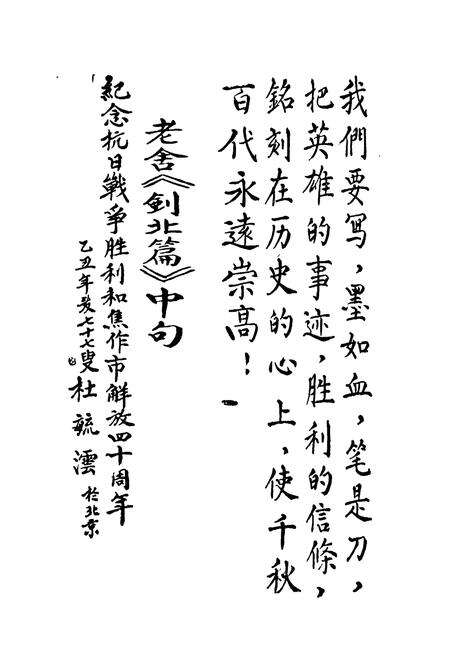 我們要写，墨如血，笔是刀，
把英雄的事迹，胜利的信條，
銘刻在历史的心上，使千秋
百代永遠崇高！
老舍《剑北篇》中句
紀念抗日戰爭胜利和焦作市解放四十周年
乙丑年 七十七叟 杜毓澐 於北京